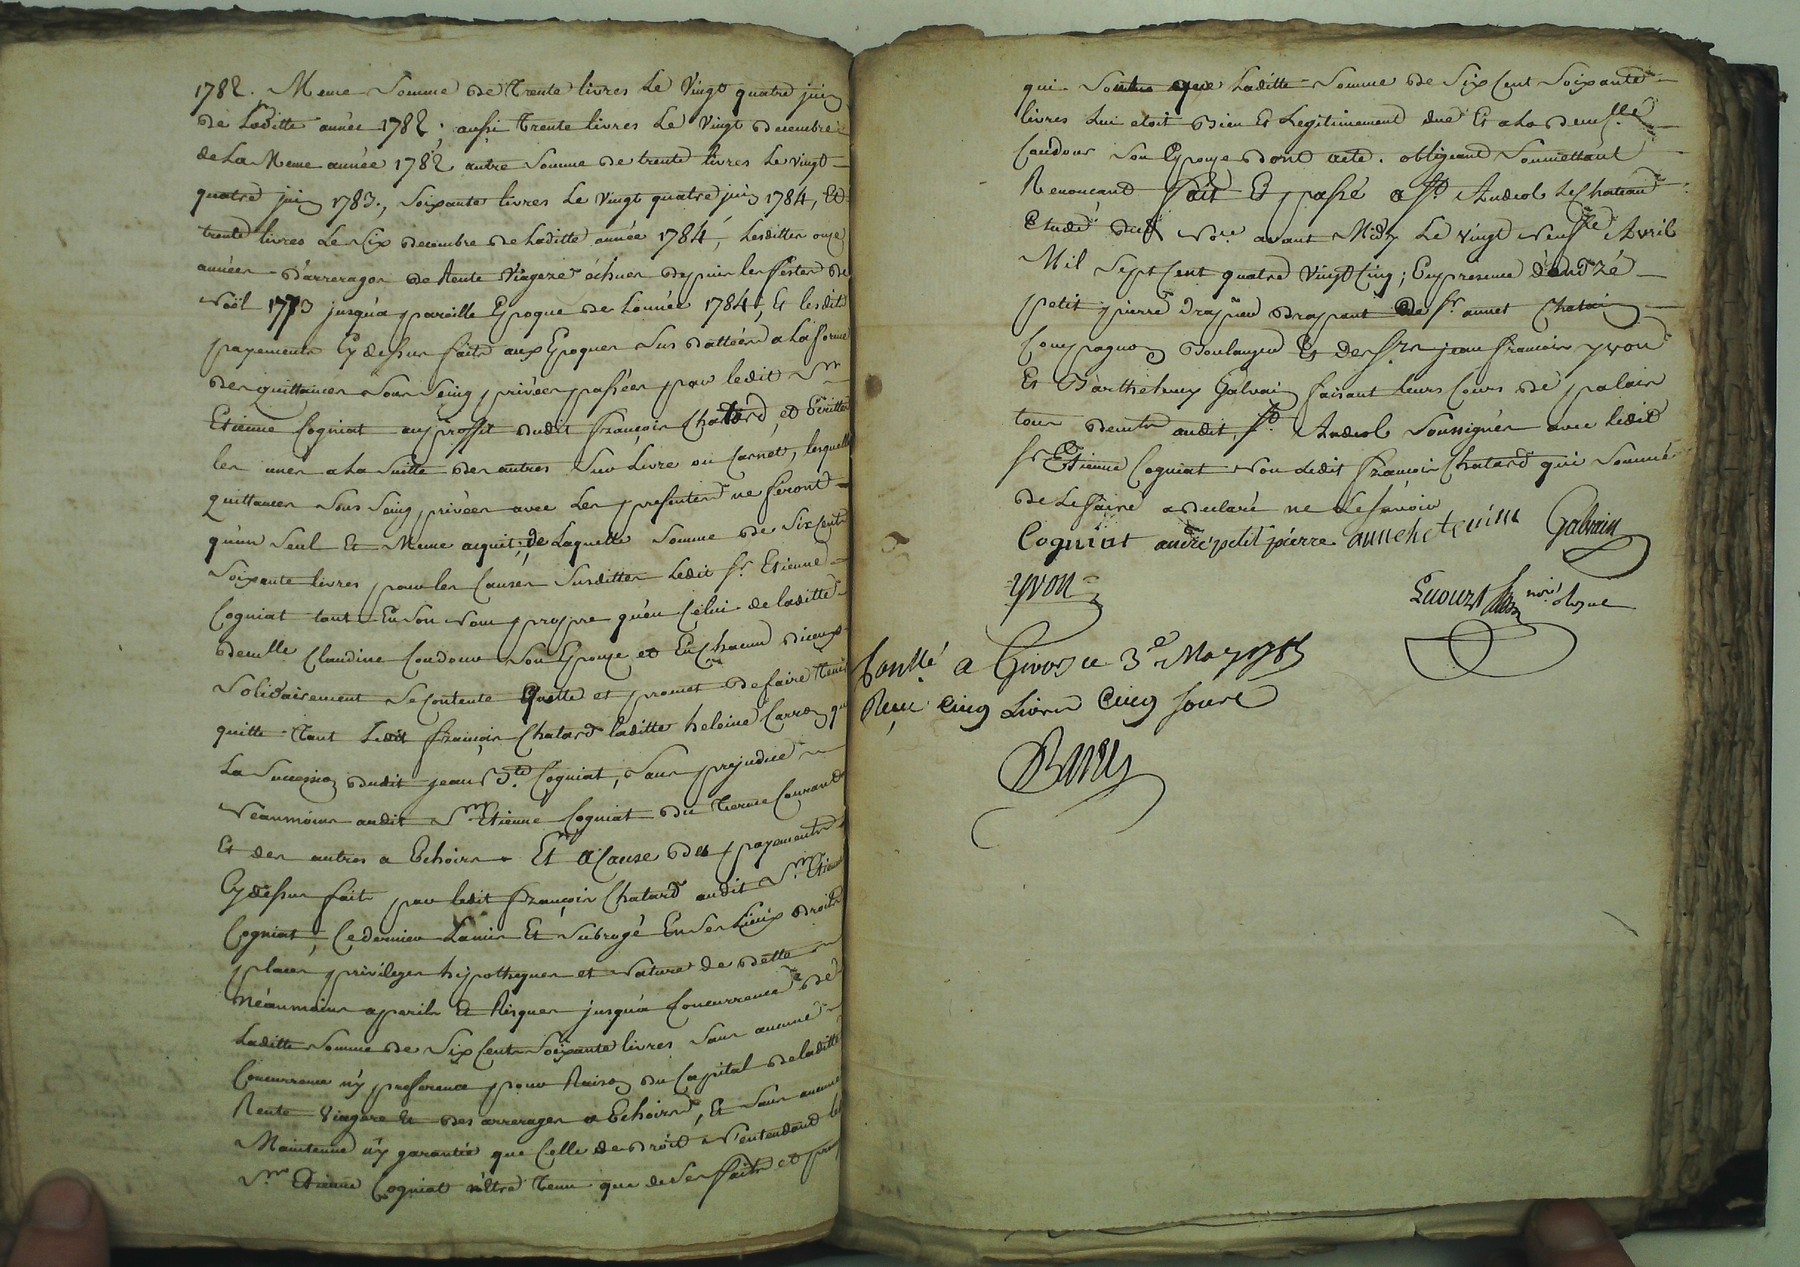 1782. Meme Somme de Trente livres Le Vingt quatre juin
de Laditte année 1782; aussi Trente livres Le Vingt decembre
de La Meme année 1782 autre Somme de trente livres Le vingt
quatre juin 1783., Soixante livres Le Vingt quatre juin 1784, Et
trente livres Le Six decembre de Laditte année 1784, Lesdittes onze
années d'arrerages de Rente Viagere échues depuis les festes de
Noël 1773 jusqu'a pareille Epoque de L'année 1784, Et lesdits
payements Cy dessus faits aux Epoques Sus dattées a La forme
des quittances Sous Seing privées passées par ledit Sr
Etienne Cogniat au proffit dudit françois Chatard, et Ecrittes
les unes a La Suitte des autres Sur Livre ou Carnet, lesquelles
quittances Sous Seing privées avec Les presentes ne feront
qu'un Seul Et Meme acquit; de Laquelle Somme de Six Cents
Soixante livres, pour les Causes Susdittes Ledit Sr Etienne
Cogniat tant En Son Nom propre qu'en Celui de laditte
demlle Claudine Condour Son Epouse et En Chacun d'iceux
Solidairement Se Contente Quitte et promet de faire Tenir
quitte Tant Ledit françois Chatard laditte heleine Carron que
La Succession dudit jean Bte Cogniat, Sans prejudice
Neanmoins audit Sr Etienne Cogniat du Terme Courant
Et des autres a Echoirs. Et a Cause des payements
Cy dessus faits par ledit François Chatard audit Sr Etienne
Cogniat, Ce dernier L'a mis Et Subrogé En Ses Lieux droits
places privileges hipotheques et Nature de dette
Néanmoins a perils Et Risques jusqu'a Concurrence de
Laditte Somme de Six Cents Soixante livres Sans aucune
Concurrence n'y preference pour Raison du Capital de laditte
Rente Viagere Et des arrerages a Echoirs, Et Sans aucune
Maintenue n'y garantie que Celle de droit N'entendant led
Sr Etienne Cogniat n'Etre Tenu que de Ses faits et
qui que Laditte Somme de Six Cent Soixante
livres Lui etoit Bien Et Legitimement due Et a La demlle
Condour Son Epouse dont acte. obligeant Soumettant
Renoncant fait Et passé a St Andeol Le Chateau
Etude dud Nore avant Midy Le Vingt Neuf Avril
Mil Sept Cent quatre Vingt Cinq; En presence d'andré
petit pierre de Sr annet
Compagnon Boulanger Et des Srs jean francois yvon
Et Barthelemy Galvain faisant leurs Cours de palais
tous demts audit St Andeol Soussignés avec Ledit
Sr Etienne Cogniat Non Ledit francois Chatard qui Sommé
de Le faire a declaré ne Le Scavoir
Cogniat andré petit pierre Galvain
yvon
nore
Conllé a Givors ce 3e May 1785
Reçu Cinq Livres Cinq Sous